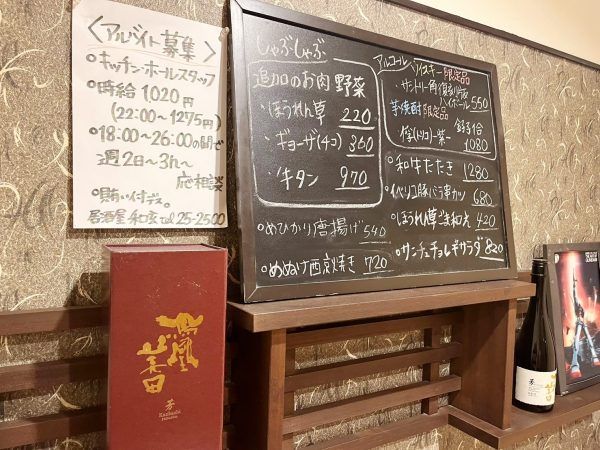 〈アルバイト募集〉
○キッチン・ホールスタッフ
○時給 1,020円
(22:00〜1275円)
○18:00〜26:00の間で
週2日〜3h〜
応相談
○賄い付デス。
居酒屋 tel 25-2500
しゃぶしゃぶ
追加のお肉 野菜
・ほうれん草 220
・ギョーザ(4コ) 360
・牛タン 970
○めひかり唐揚げ 540
○めぬけ西京焼き 720
アルコール
ウイスキー限定品
サントリー角復刻版
ハイボール 550
芋焼酎限定品
1080
○和牛たたき 1280
○イベリコ豚バラ串カツ 680
○ほうれん草ごま和え 420
○サンチュチョレギサラダ 820
鳳凰美田
芳
Kanbashi